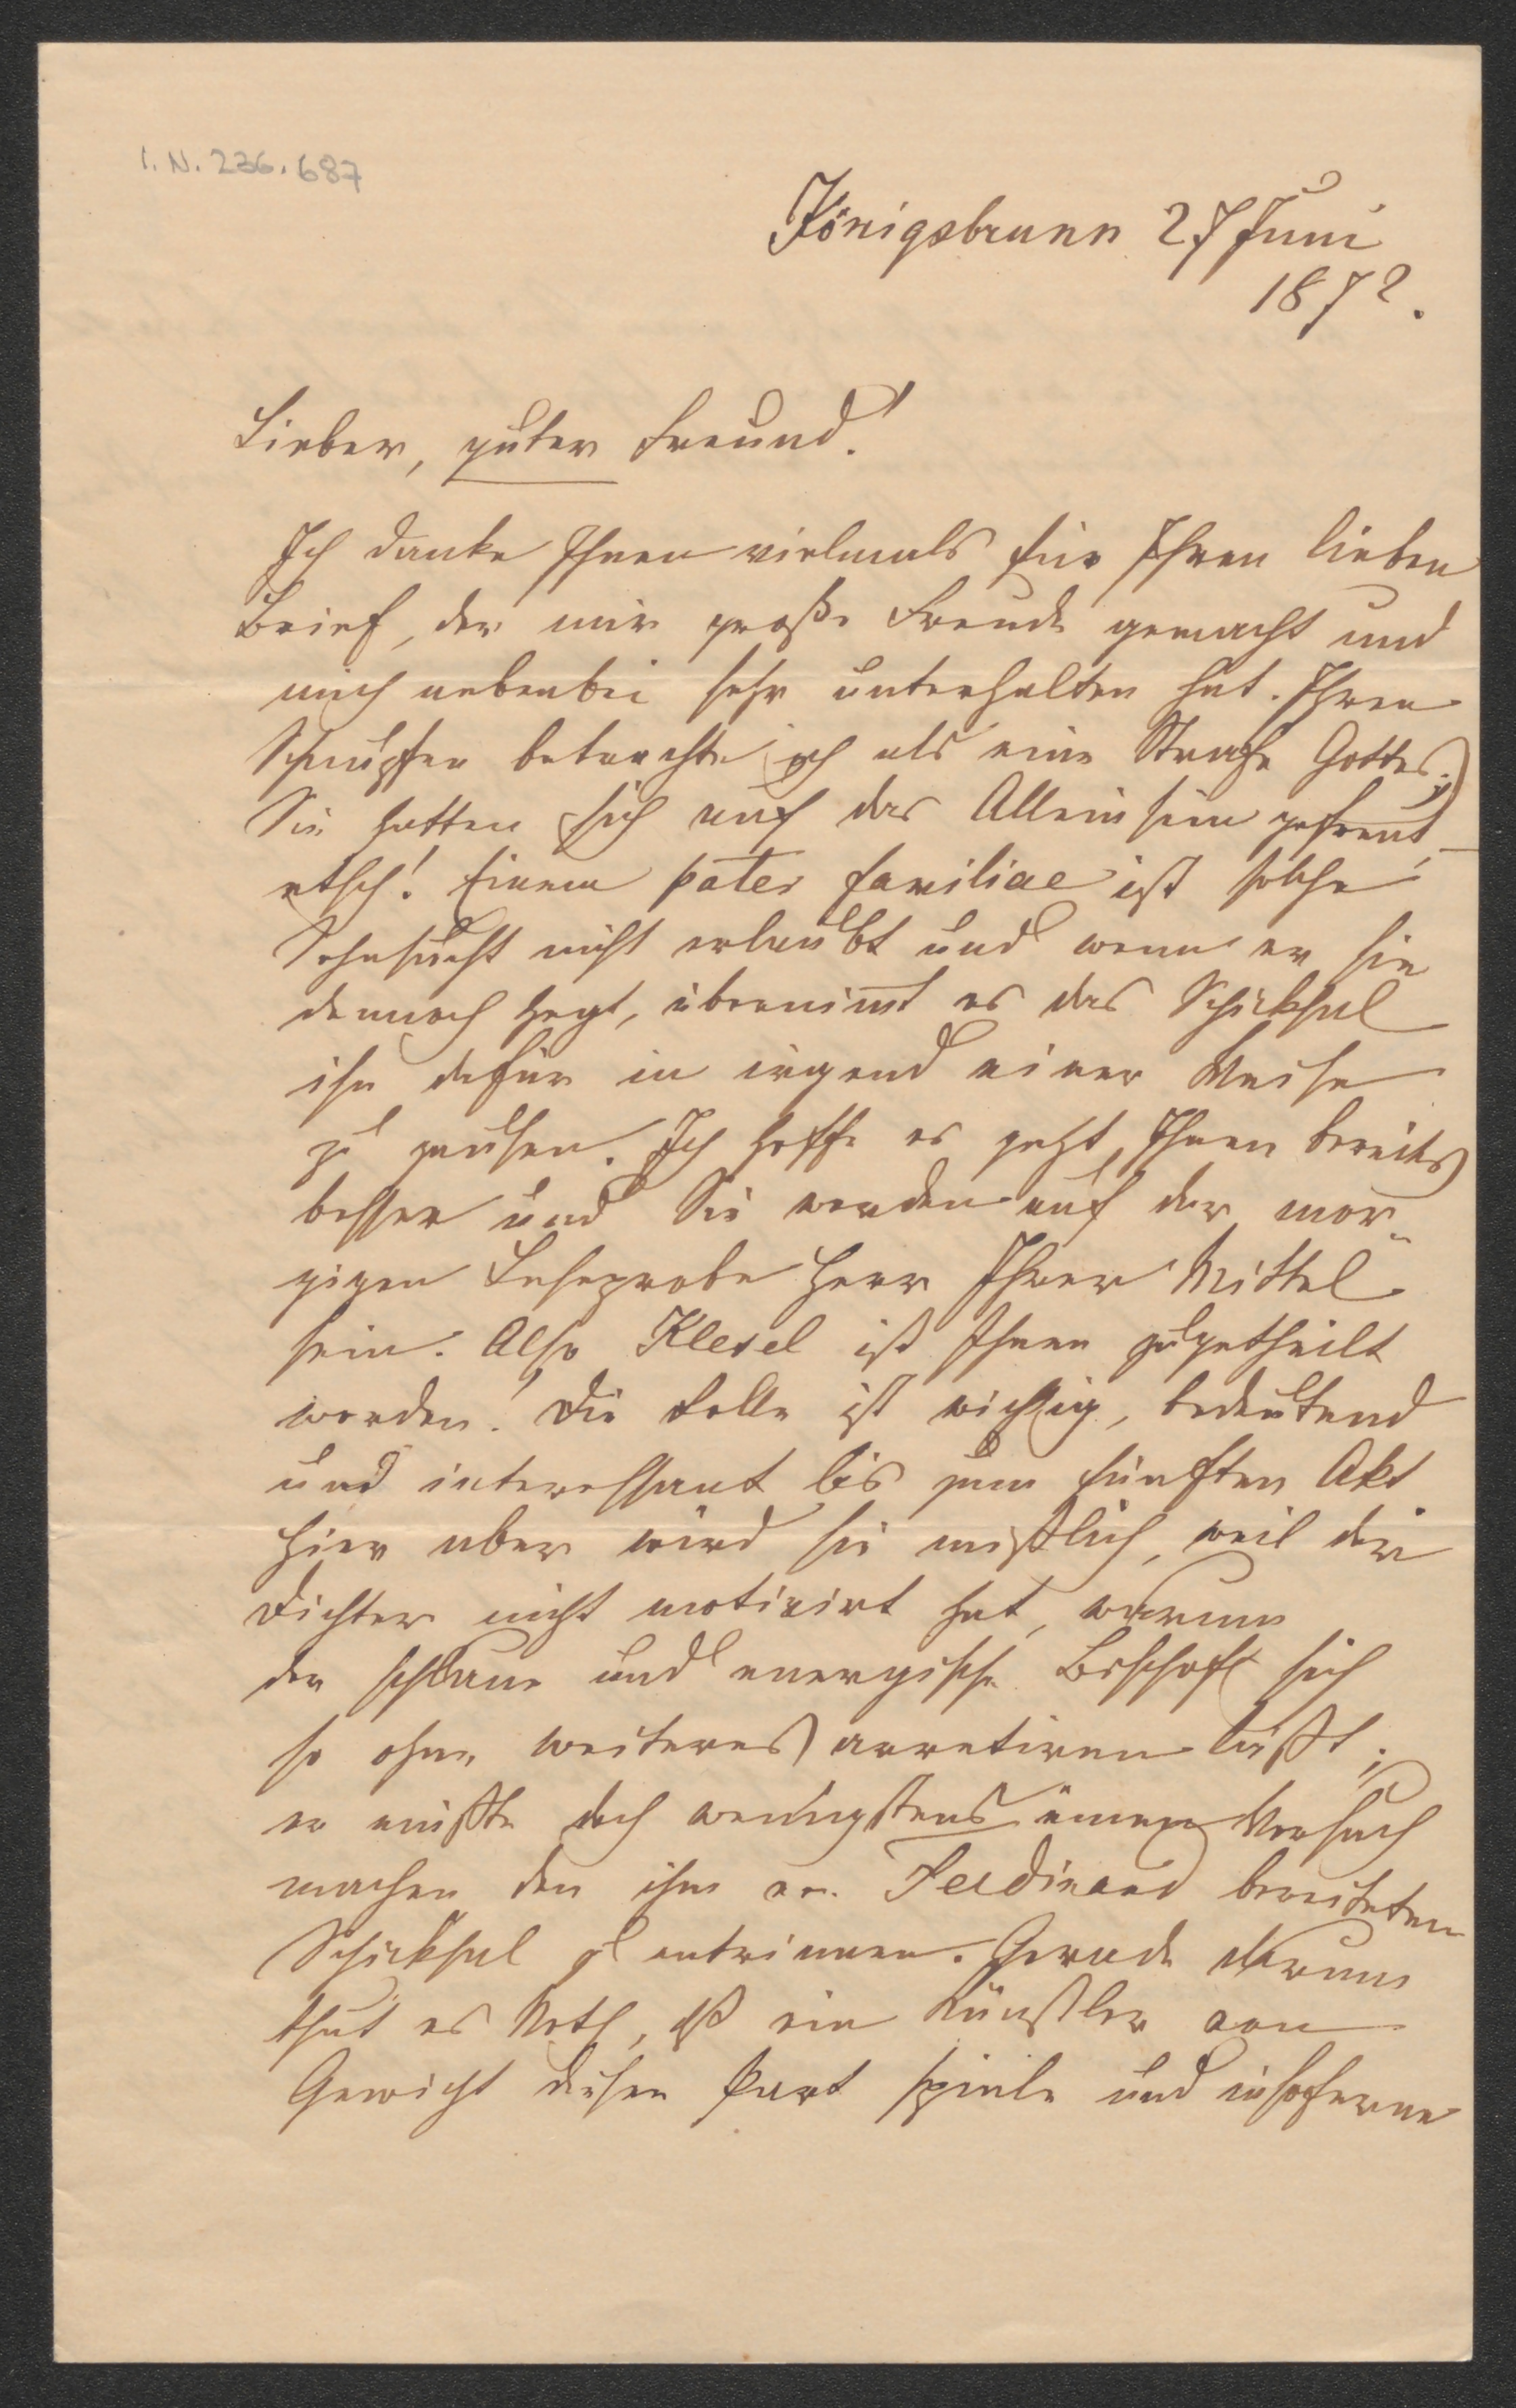 I. N. 236.687
Königsbrunn 27 Juni
1872.
Lieber, guter Freund!
Ich danke Ihnen vielmals für Ihren lieben
Brief, der mir große Freude gemacht und
mich nebenbei sehr unterhalten hat. Ihren
Schnupfen betrachte ich als eine Strafe Gottes;
Sie hatten sich auf das Alleinsein gefreut –
etsch! Einem pater familiae ist solche
Sehnsucht nicht erlaubt und wenn er sie
dennoch hegt, übernim̅t es das Schicksal
ihn dafür in irgend einer Weise
zu zausen. Ich hoffe es geht Ihnen bereits
besser und Sie werden auf der mor-
gigen Leseprobe Herr Ihrer Mittel
sein. Also Klesel ist Ihnen zugetheilt
worden! Die Rolle ist wichtig, bedeutend
und interessant bis zum fünften Akt
hier aber wird sie mißlich, weil der
Dichter nicht motivirt hat, warum
der schlaue und energische Bischof sich
so ohne weiteres arretiren läßt;
er müßte doch wenigstens einen Versuch
machen dem ihm von Ferdinand bereiteten
Schicksal zu entrinnen. Gerade darum
thut es Noth, daß ein Künstler von
Gewicht diesen Part spiele und insoferne